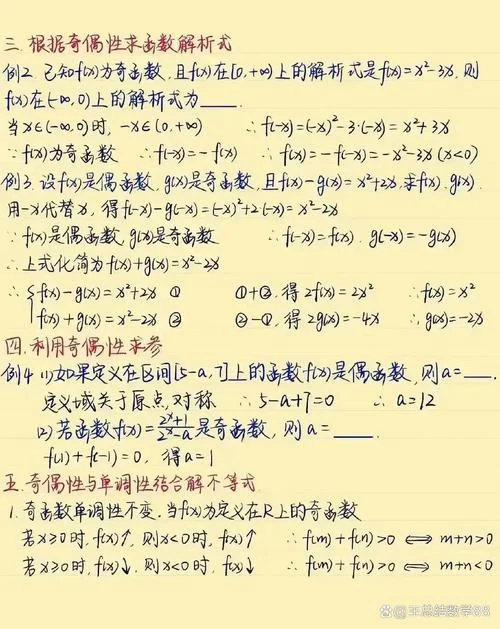 三.根据奇偶性求函数解析式
例2.已知f(x)为奇函数,且f(x)在[0,+∞)上的解析式是f(x)=x²-3x,则
f(x)在(-∞,0)上的解析式为____.
当x∈(-∞,0)时, -x∈(0,+∞) ∴f(-x)=(-x)²-3·(-x)=x²+3x
∵f(x)为奇函数 ∴f(-x)=-f(x) ∴f(x)=-f(-x)=-x²-3x(x<0)
例3.设f(x)是偶函数,g(x)是奇函数,且f(x)-g(x)=x²+2x,求f(x).g(x).
用-x代替x,得f(-x)-g(-x)=(-x)²+2(-x)=x²-2x
∵f(x)是偶函数,g(x)是奇函数 ∴f(-x)=f(x).g(-x)=-g(x)
∴上式化简为f(x)+g(x)=x²-2x
∴{f(x)-g(x)=x²+2x ① ①+②,得2f(x)=2x² ∴f(x)=x²
f(x)+g(x)=x²-2x ② ②-①,得2g(x)=-4x ∴g(x)=-2x
四.利用奇偶性求参
例4.(1)如果定义在区间[5-a,7]上的函数f(x)是偶函数,则a=___.
定义域关于原点对称 ∴5-a+7=0 ∴a=12
(2)若函数f(x)=(2ˣ+1)/(2ˣ-a)是奇函数,则a=____.
f(1)+f(-1)=0,得a=1
五.奇偶性与单调性结合解不等式.
1.奇函数单调性不变.当f(x)为定义在R上的奇函数
若x≥0时,f(x)↑,则x<0时,f(x)↑ ∴f(m)+f(n)>0⟺m+n>0
若x≥0时,f(x)↓,则x<0时,f(x)↓ ∴f(m)+f(n)>0⟺m+n<0
王总结数学88